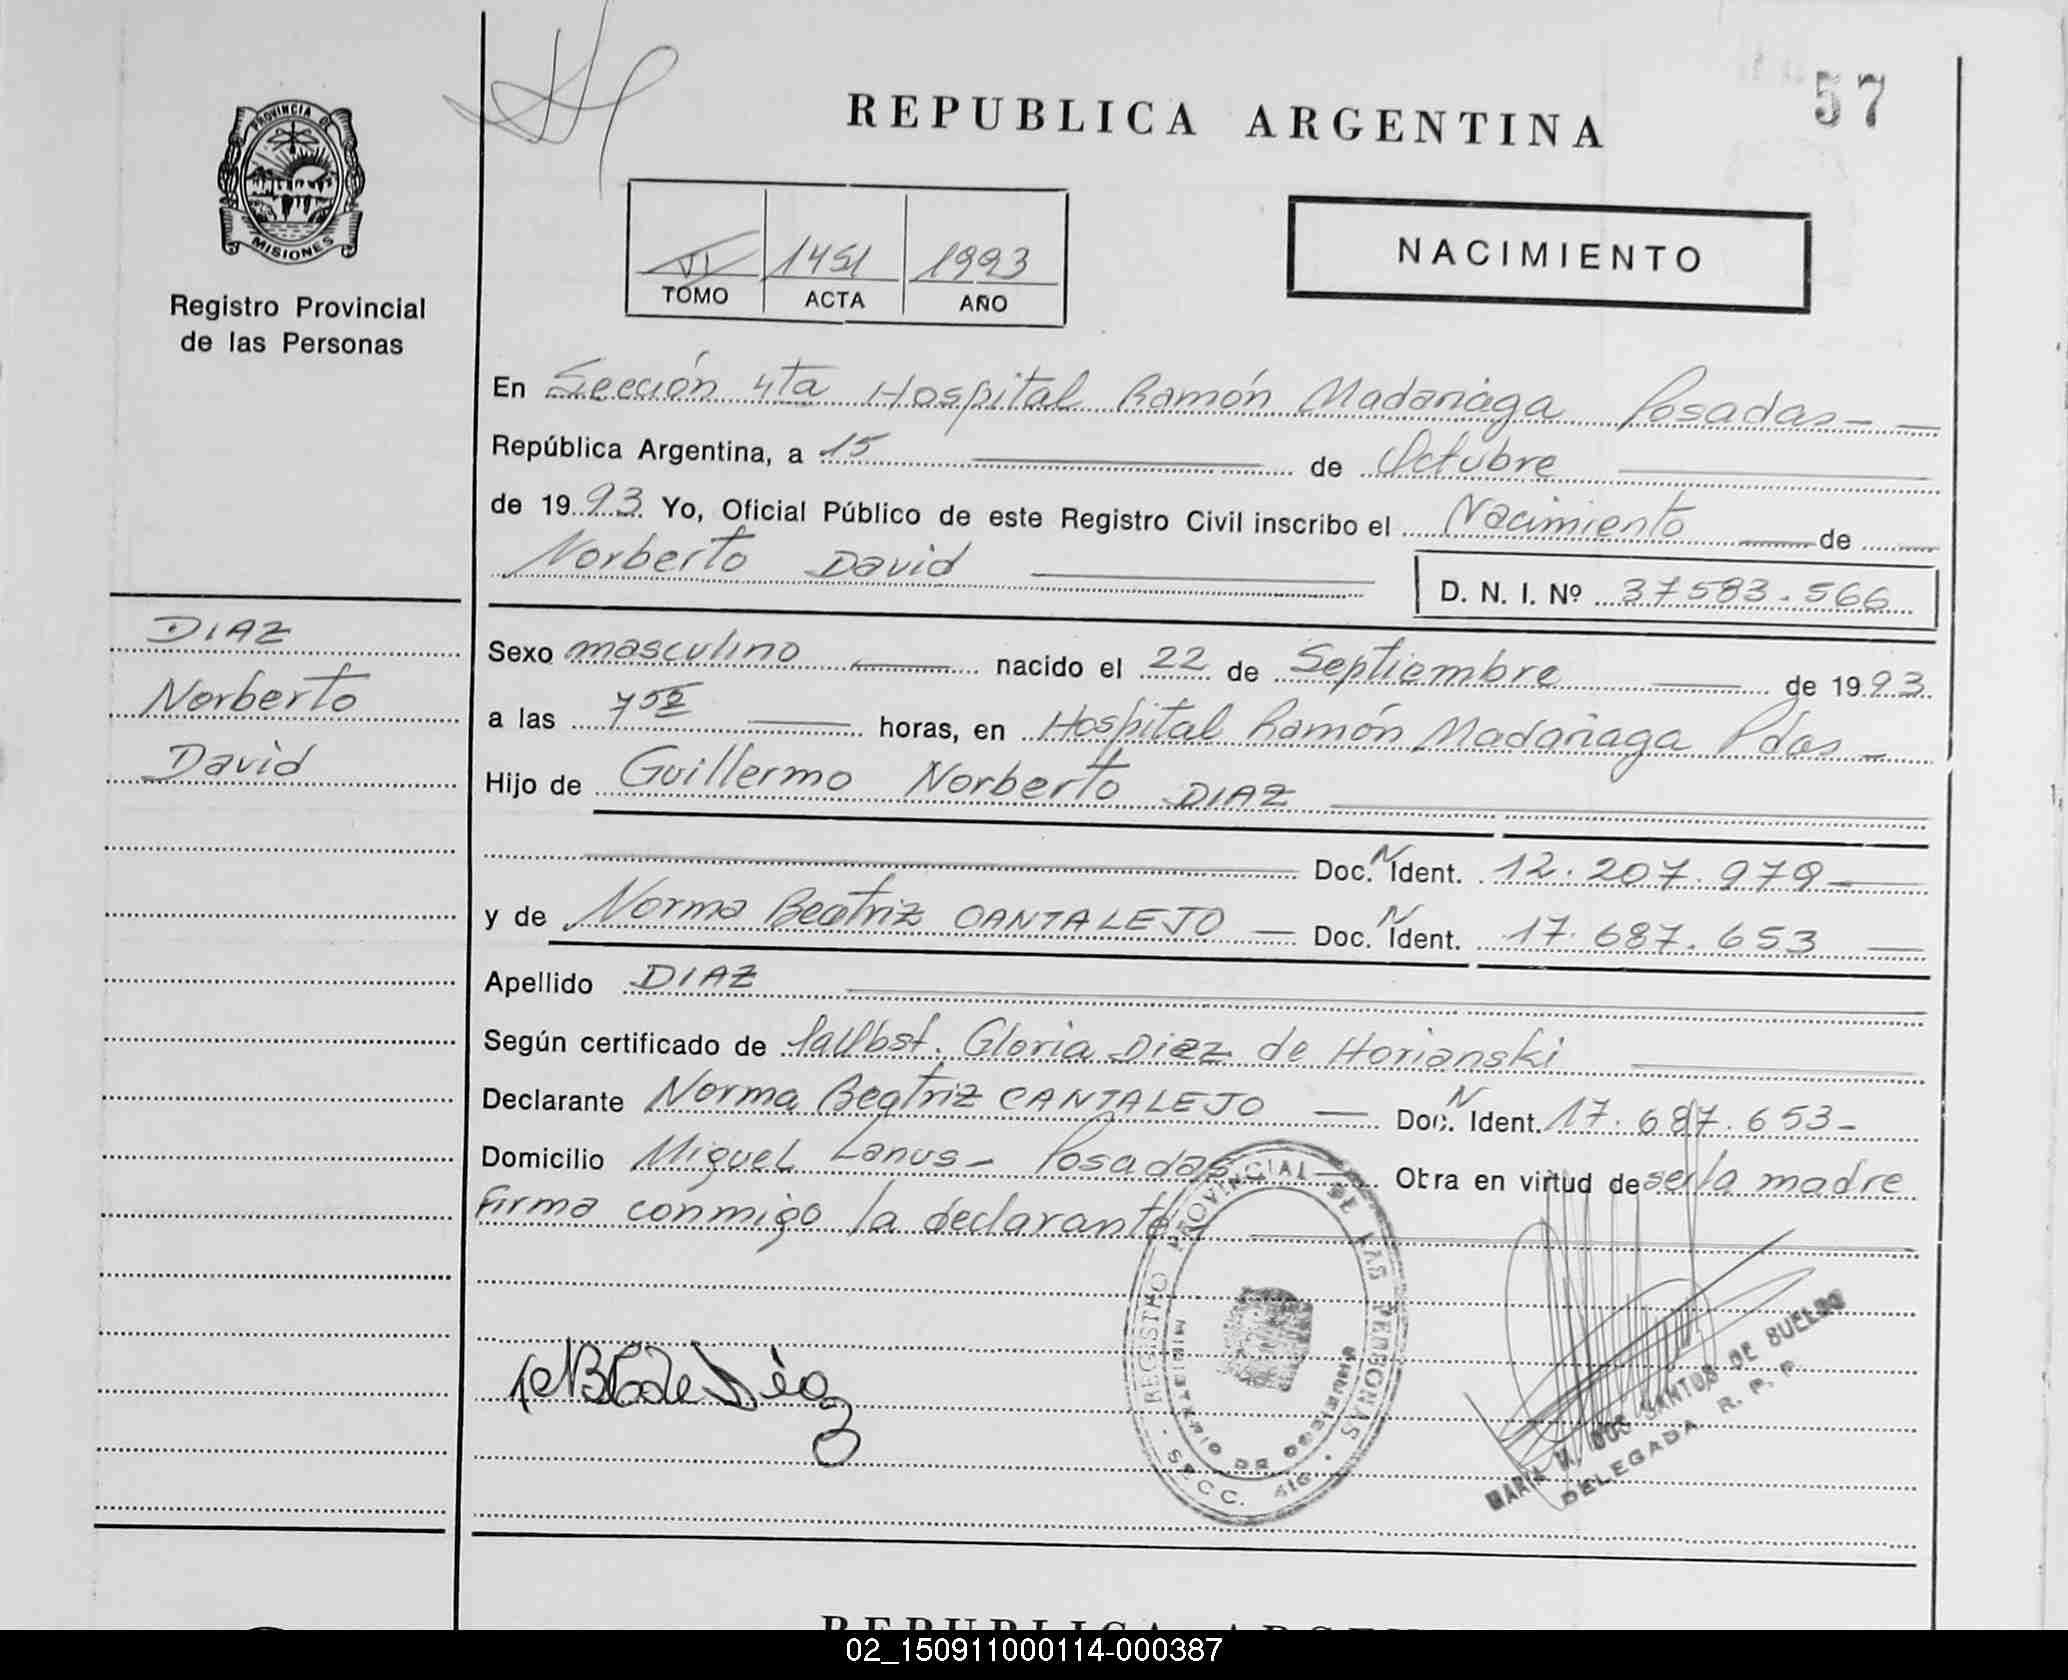 57
REPUBLICA ARGENTINA
PROVINCIA DE
MISIONES
Registro Provincial
de las Personas
VI 1451 1993
TOMO ACTA AÑO
NACIMIENTO
En Sección 4ta Hospital Ramón Madariaga Posadas
República Argentina, a 15 de Octubre
de 1993 Yo, Oficial Público de este Registro Civil inscribo el Nacimiento de
Norberto David
D. N. I. Nº 37583.566
DIAZ
Norberto
David
Sexo masculino nacido el 22 de Septiembre de 1993
a las 7 52 horas, en Hospital Ramón Madariaga Pdas
Hijo de Guillermo Norberto DIAZ
Doc. N Ident. 12.207.979
y de Norma Beatriz CANTALEJO Doc. N Ident. 17.687.653
Apellido DIAZ
Según certificado de Gloria Diez de Horianski
Declarante Norma Beatriz CANTALEJO Doc. N Ident. 17.687.653
Domicilio Miguel Lanus - Posadas Obra en virtud de ser la madre
firma conmigo la declarante
REGISTRO PROVINCIAL DE LAS PERSONAS
MINISTERIO DE GOBIERNO
SECC. 4ta
MARIA DOS SANTOS DE BUELOS
DELEGADA R. P. P.
REPUBLICA
02_150911000114-000387